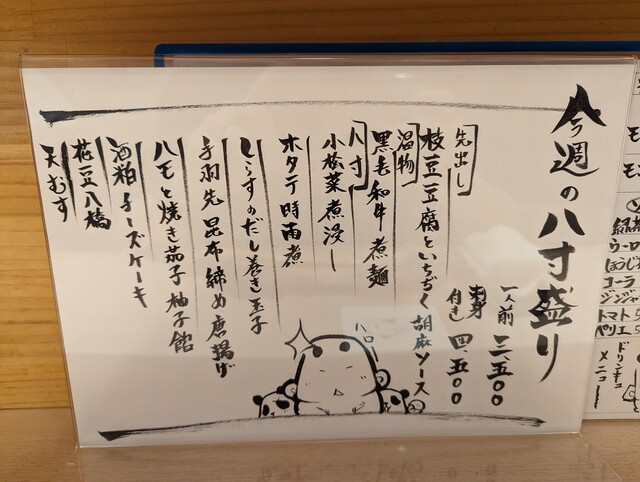 今週の八寸盛り
一人前 三、五〇〇
刺身付き 四、五〇〇
先出し
枝豆豆腐といちぢく胡麻ソース
温物
黒毛和牛煮麺
八寸
小松菜煮浸し
ホタテ時雨煮
しらすのだし巻き玉子
手羽先昆布締め唐揚げ
ハモと焼き茄子柚子餡
酒粕チーズケーキ
花豆八橋
天むす
ハロー
コーラ
トマト
ペリエ
ドリンク
メニュー